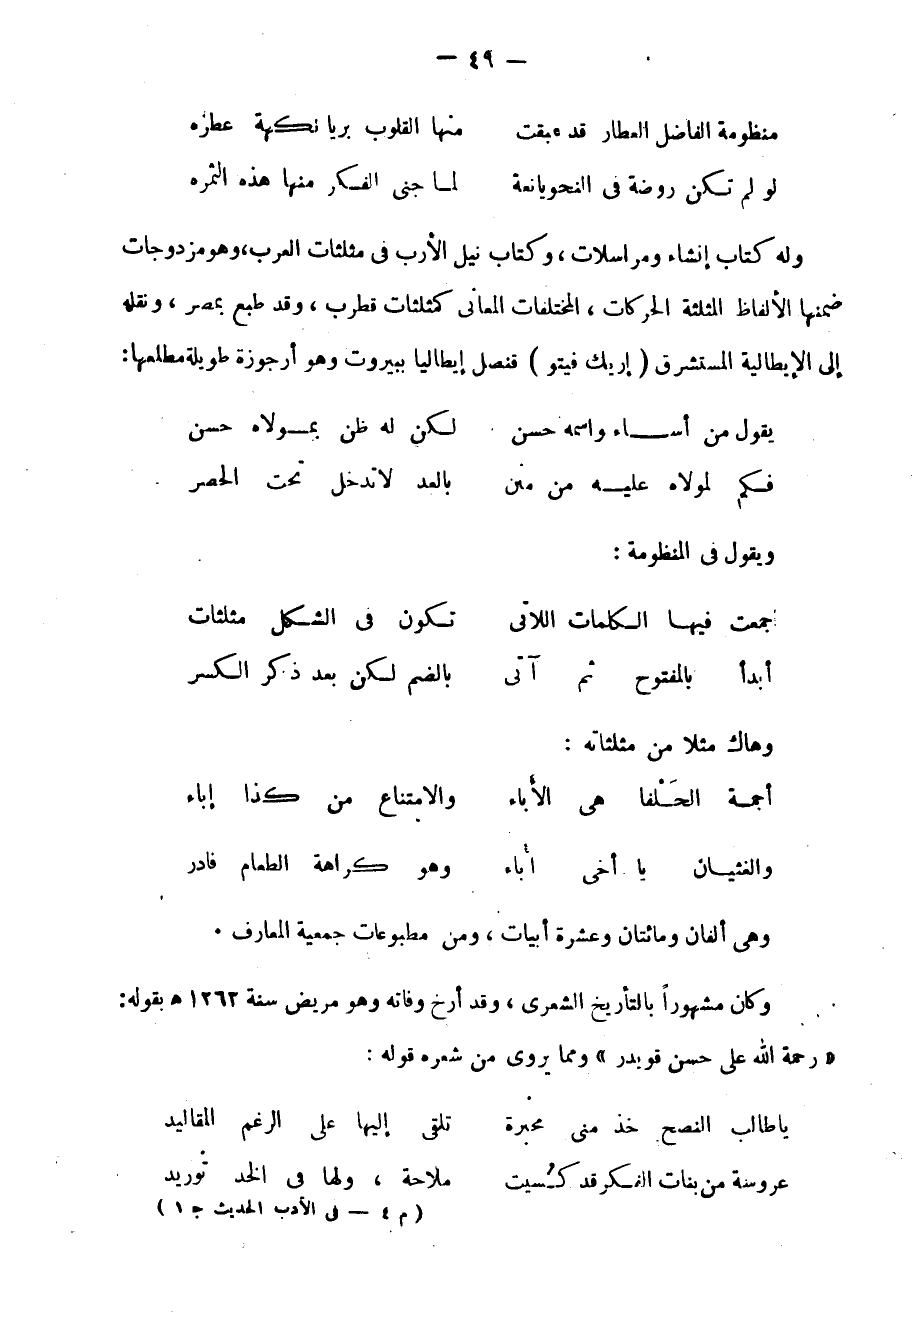 — ٤٩ —
منظومة الفاضل العطار قد عبقت منها القلوب بريا نكهة عطره
لو لم تكن روضة فى النحو يانعة لما جنى الفكر منها هذه الثمره
وله كتاب إنشاء ومراسلات ، وكتاب نيل الأرب فى مثلثات العرب، وهو مزدوجات
ضمنها الألفاظ المثلثة الحركات ، المختلفات المعانى كمثلثات قطرب ، وقد طبع بمصر ، ونقله
إلى الإيطالية المستشرق ( إريك فيتو ) قنصل إيطاليا ببيروت وهو أرجوزة طويلة مطلعها:
يقول من أساء واسمه حسن لكن له ظن بمولاه حسن
فكم لمولاه عليه من منن بالعد لاتدخل تحت الحصر
ويقول فى المنظومة :
جمعت فيها الكلمات اللاتى تكون فى الشكل مثلثات
أبدأ بالمفتوح ثم آتى بالضم لكن بعد ذكر الكسر
وهاك مثلا من مثلثاته :
أجمة الحَلْفا هى الأَباء والامتناع من كذا إباء
والغثيان يا أخى أُباء وهو كراهة الطعام فادر
وهى ألفان ومائتان وعشرة أبيات ، ومن مطبوعات جمعية المعارف .
وكان مشهوراً بالتأريخ الشعرى ، وقد أرخ وفاته وهو مريض سنة ١٢٦٢ ه بقوله:
« رحمة الله على حسن قويدر » ومما يروى من شعره قوله :
ياطالب النصح خذ منى محبرة تلقى إليها على الرغم المقاليد
عروسة من بنات الفكر قد كُسيت ملاحة ، ولها فى الخد توريد
( م ٤ — فى الأدب الحديث ج ١ )